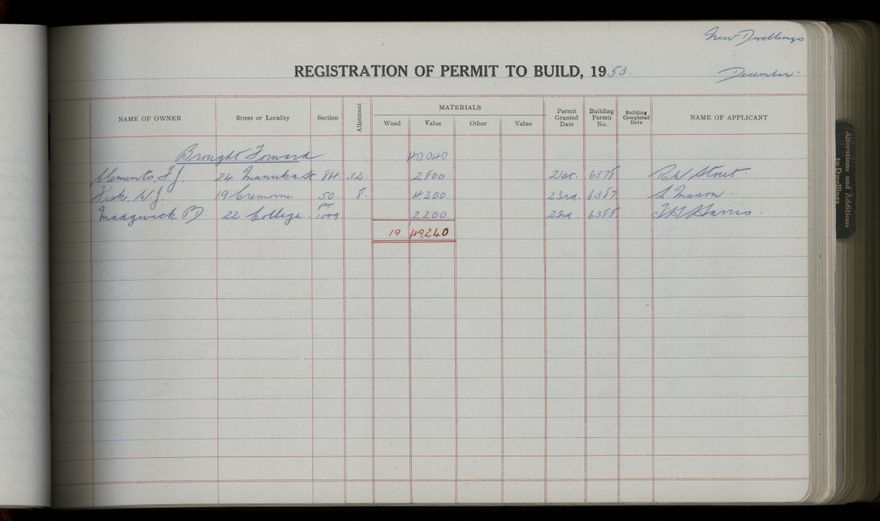 New Dwellings
REGISTRATION OF PERMIT TO BUILD, 1953
December.
NAME OF OWNER Street or Locality Section Allotment MATERIALS Wood Value Other Value Permit Granted Date Building Permit No. Building Completed Date NAME OF APPLICANT
Brought Forward 40040
Clements, F.J. 24 Manuka St 84. 32. 2800. 21st. 6378. Stout
Fisk, N.J. 19 Cremorne 50. 8. 4200. 23rd. 6387. Mason.
Madgwick 22 College. pt 1009 2200 23rd. 6388. Harris.
19 49240
Alterations and Additions
to Dwellings